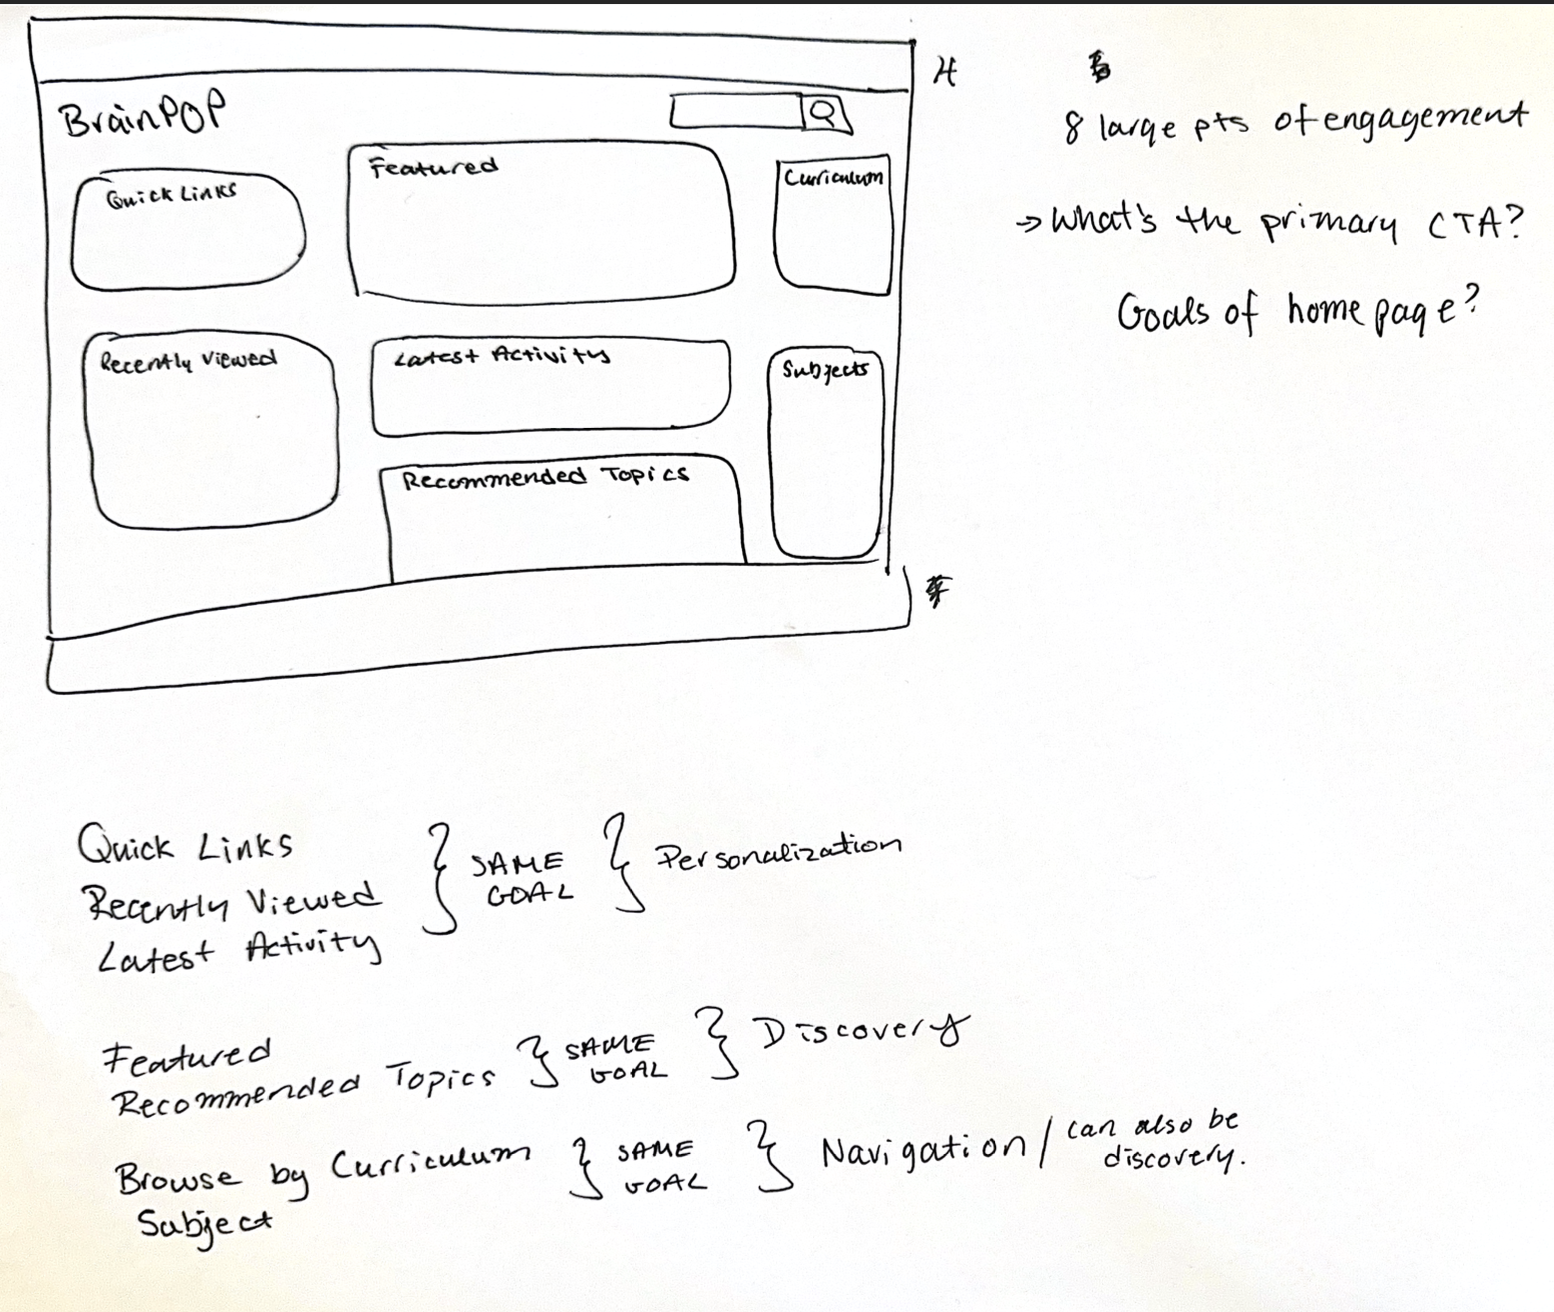 H
BrainPOP
Quick Links
Featured
Curriculum
Recently Viewed
Latest Activity
Subjects
Recommended Topics
8 large pts of engagement
→ What's the primary CTA?
Goals of homepage?
Quick Links
Recently Viewed
Latest Activity
SAME
GOAL
Personalization
Featured
Recommended Topics
SAME
GOAL
Discovery
Browse by Curriculum
Subject
SAME
GOAL
Navigation / can also be
discovery.